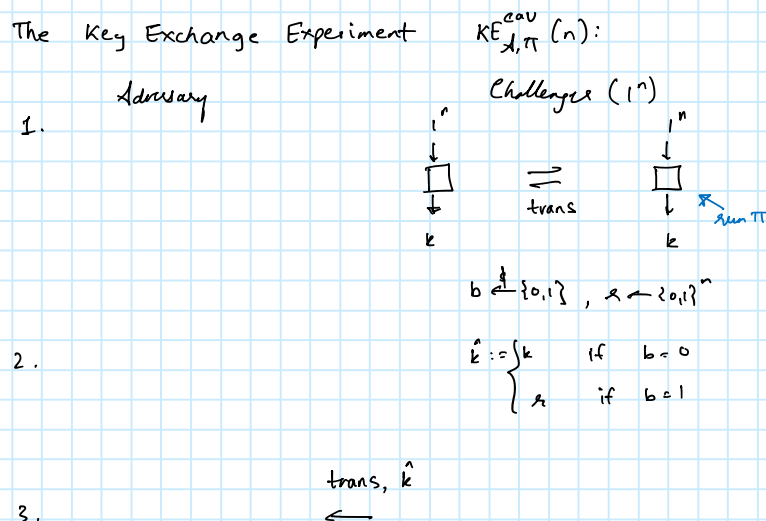 The Key Exchange Experiment KE^{eav}_{A,π}(n):
Adversary Challenger (1^n)
1.
1^n 1^n
↓ ↓
□ ⇌ □
trans
↓ ↓ run π
k k
b ←$ {0,1}, r ← {0,1}^n
2. k̂ := { k if b = 0
r if b = 1
trans, k̂
3. ←